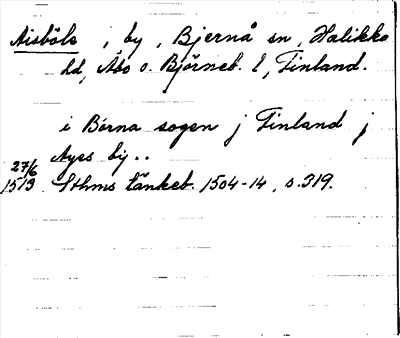 Aisböle, by, Bjernå sn, Halikko
hd, Åbo o. Björneb. l, Finland.
i Berna sogen j Finland j
Ayss by..
27/6
1513 Sthms tänkeb. 1504-14, s. 319.